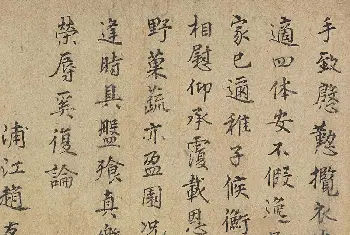 手致慇懃攬衣
適四体安不假
家已適稚子候衡
相慰仰承覆載恩
野菓蔬亦盈園况
違時具盤飱真
榮辱奚復論
浦江趙友